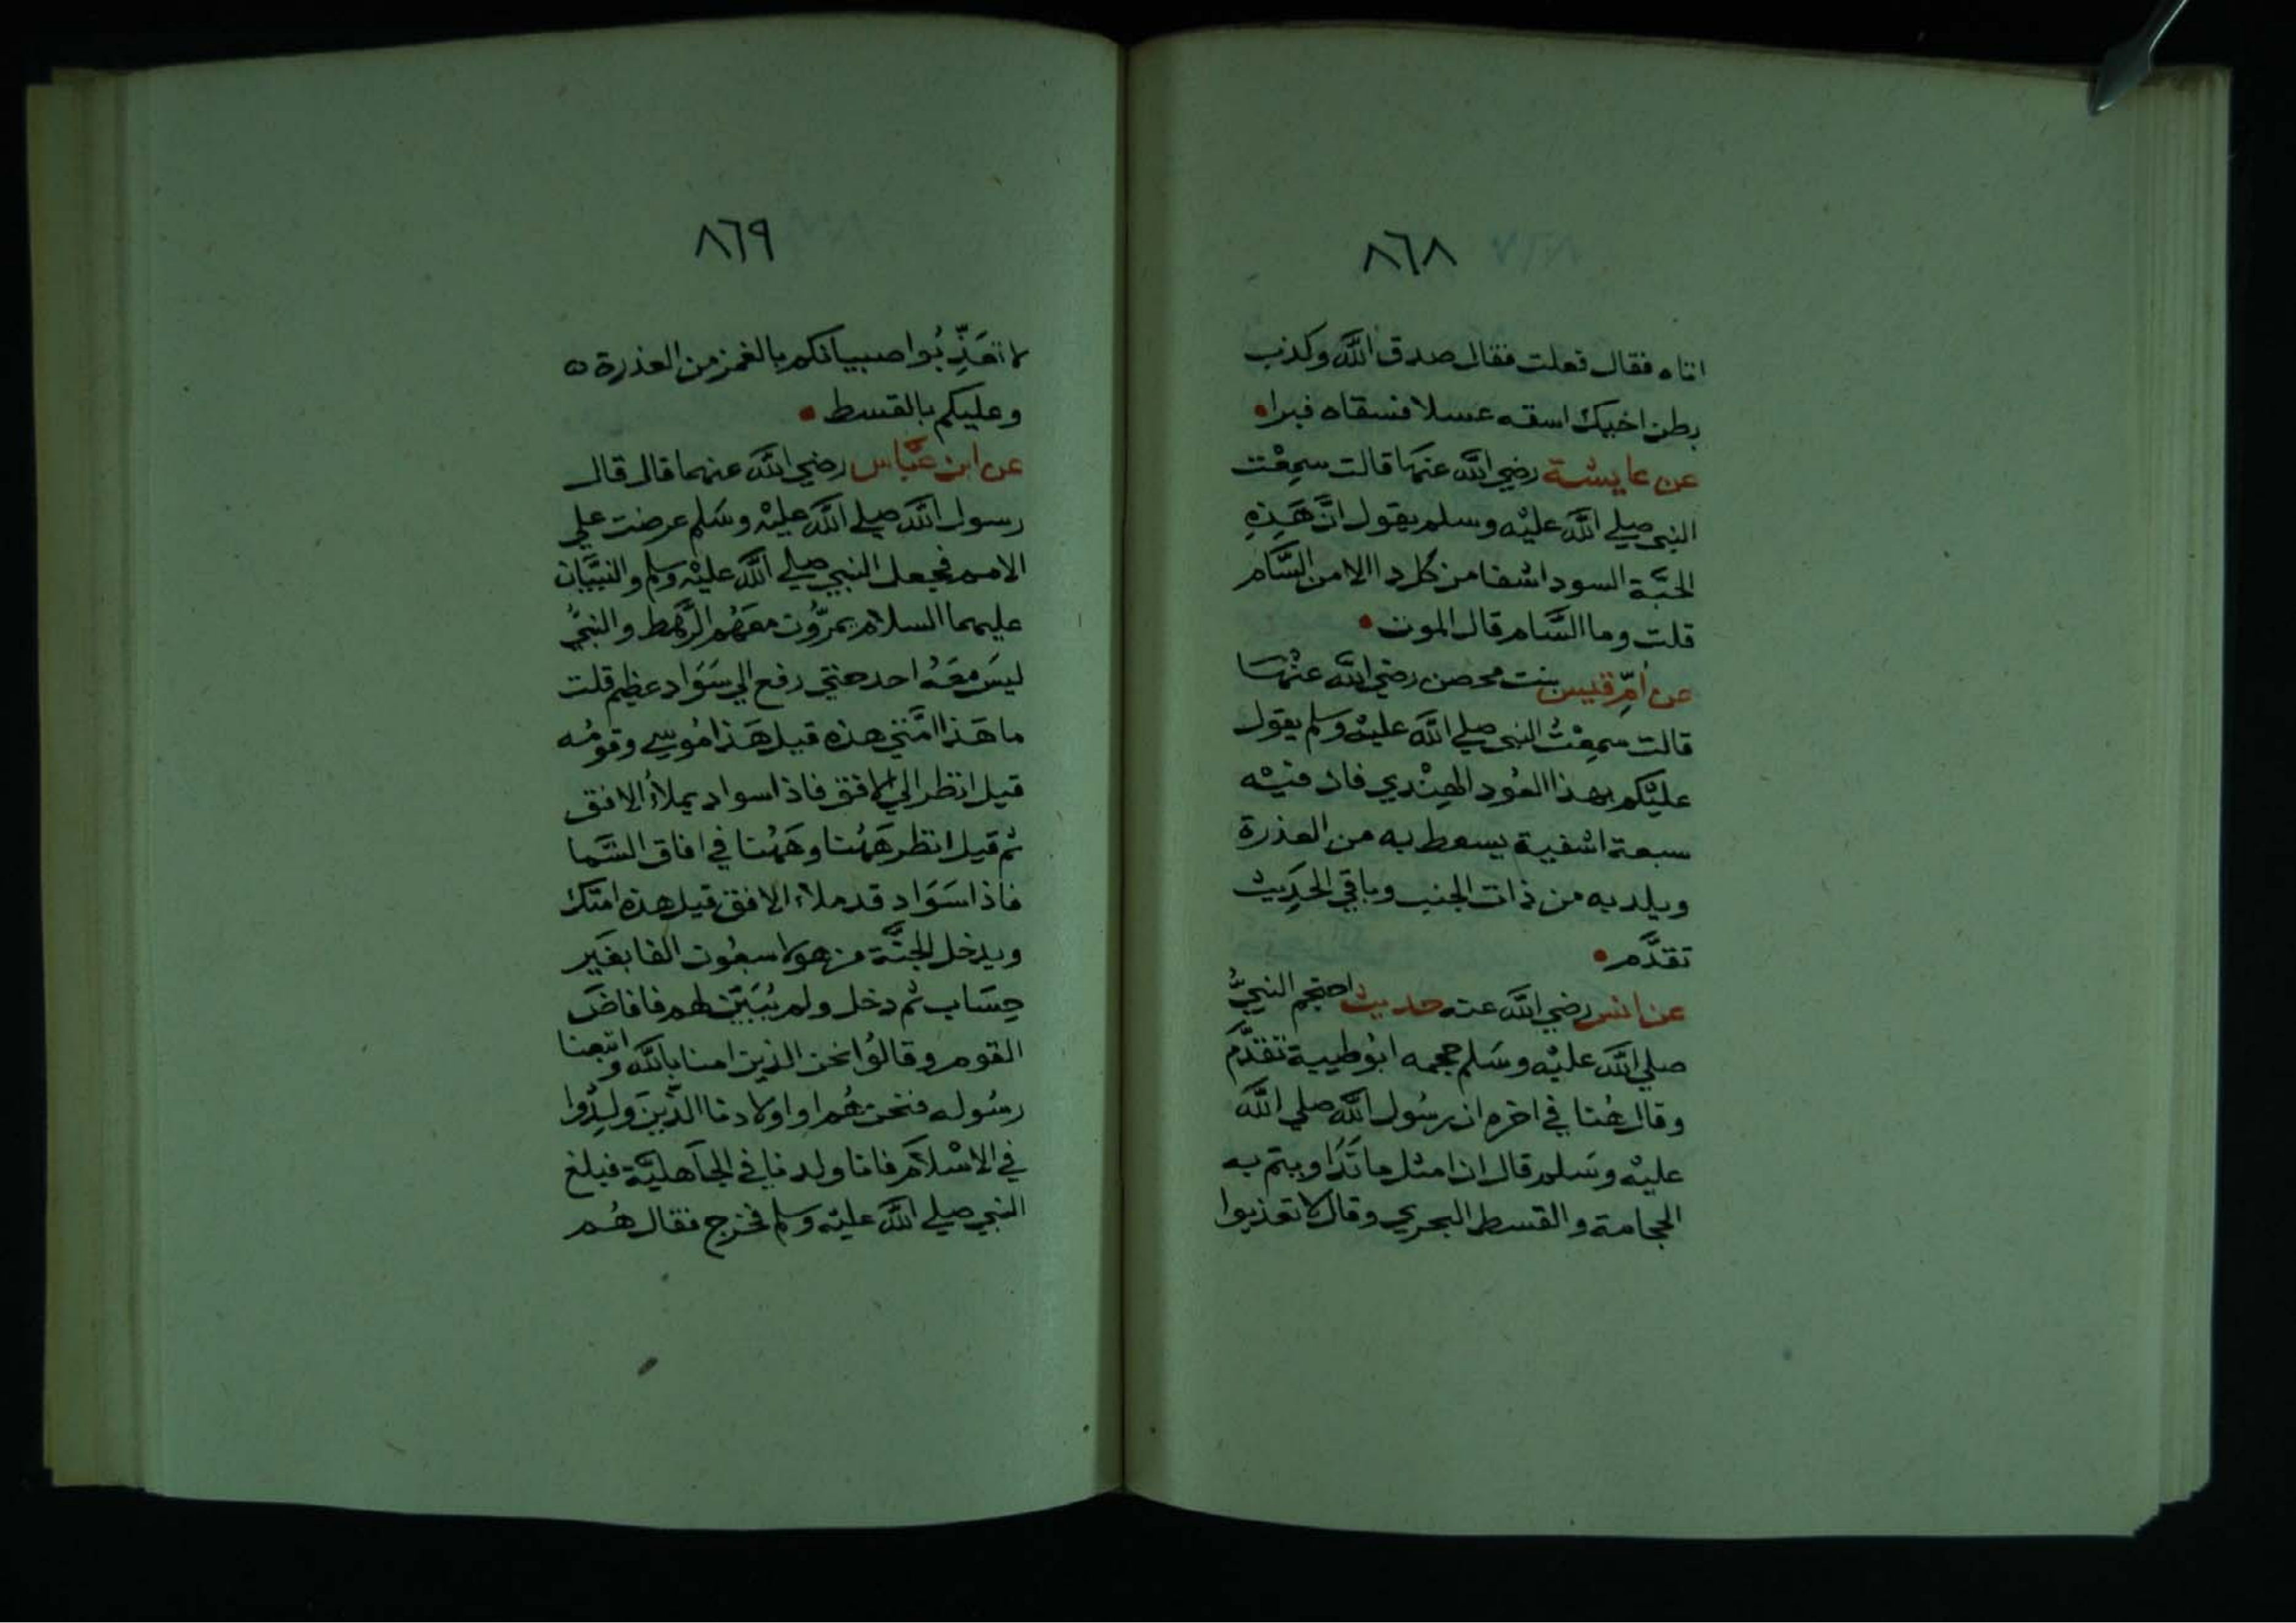 ٨٦٨
اتاه فقال فعلت فقال صدق الله وكذب
بطن اخيك اسقه عسلا فسقاه فبرا
عن عايشة رضي الله عنها قالت سمعت
النبي صلي الله عليه وسلم يقول ان هذه
الحبة السودا شفا من كل دا الا من السام
قلت وما السام قال الموت
عن ام قيس بنت محصن رضي الله عنها
قالت سمعت النبي صلي الله عليه وسلم يقول
عليكم بهذا العود الهندي فان فيه
سبعة اشفية يسعط به من العذرة
ويلد به من ذات الجنب وباقي الحديث
تقدم
عن انس رضي الله عنه حديث احتجم النبي
صلي الله عليه وسلم حجمه ابو طيبة تقدم
وقال هنا في اخره ان رسول الله صلي الله
عليه وسلم قال ان امثل ما تداويتم به
الحجامة والقسط البحري وقال لا تعذبوا
٨٦٩
لا تعذبوا صبيانكم بالغمز من العذرة
وعليكم بالقسط
عن ابن عباس رضي الله عنهما قال قال
رسول الله صلي الله عليه وسلم عرضت علي
الامم فجعل النبي صلي الله عليه وسلم والنبيان
عليهما السلام يمرون معهم الرهط والنبي
ليس معه احد حتي رفع الي سواد عظيم قلت
ما هذا امتي هذه قيل هذا موسي وقومه
قيل انظر الي الافق فاذا سواد يملأ الافق
ثم قيل انظر ههنا وههنا في افاق السما
فاذا سواد قد ملاء الافق قيل هذه امتك
ويدخل الجنة من هولا سبعون الفا بغير
حساب ثم دخل ولم يبين لهم فافاض
القوم وقالوا نحن الذين امنا بالله واتبعنا
رسوله فنحن هم او اولادنا الذين ولدوا
في الاسلام فانا ولدنا في الجاهلية فبلغ
النبي صلي الله عليه وسلم فخرج فقال هم